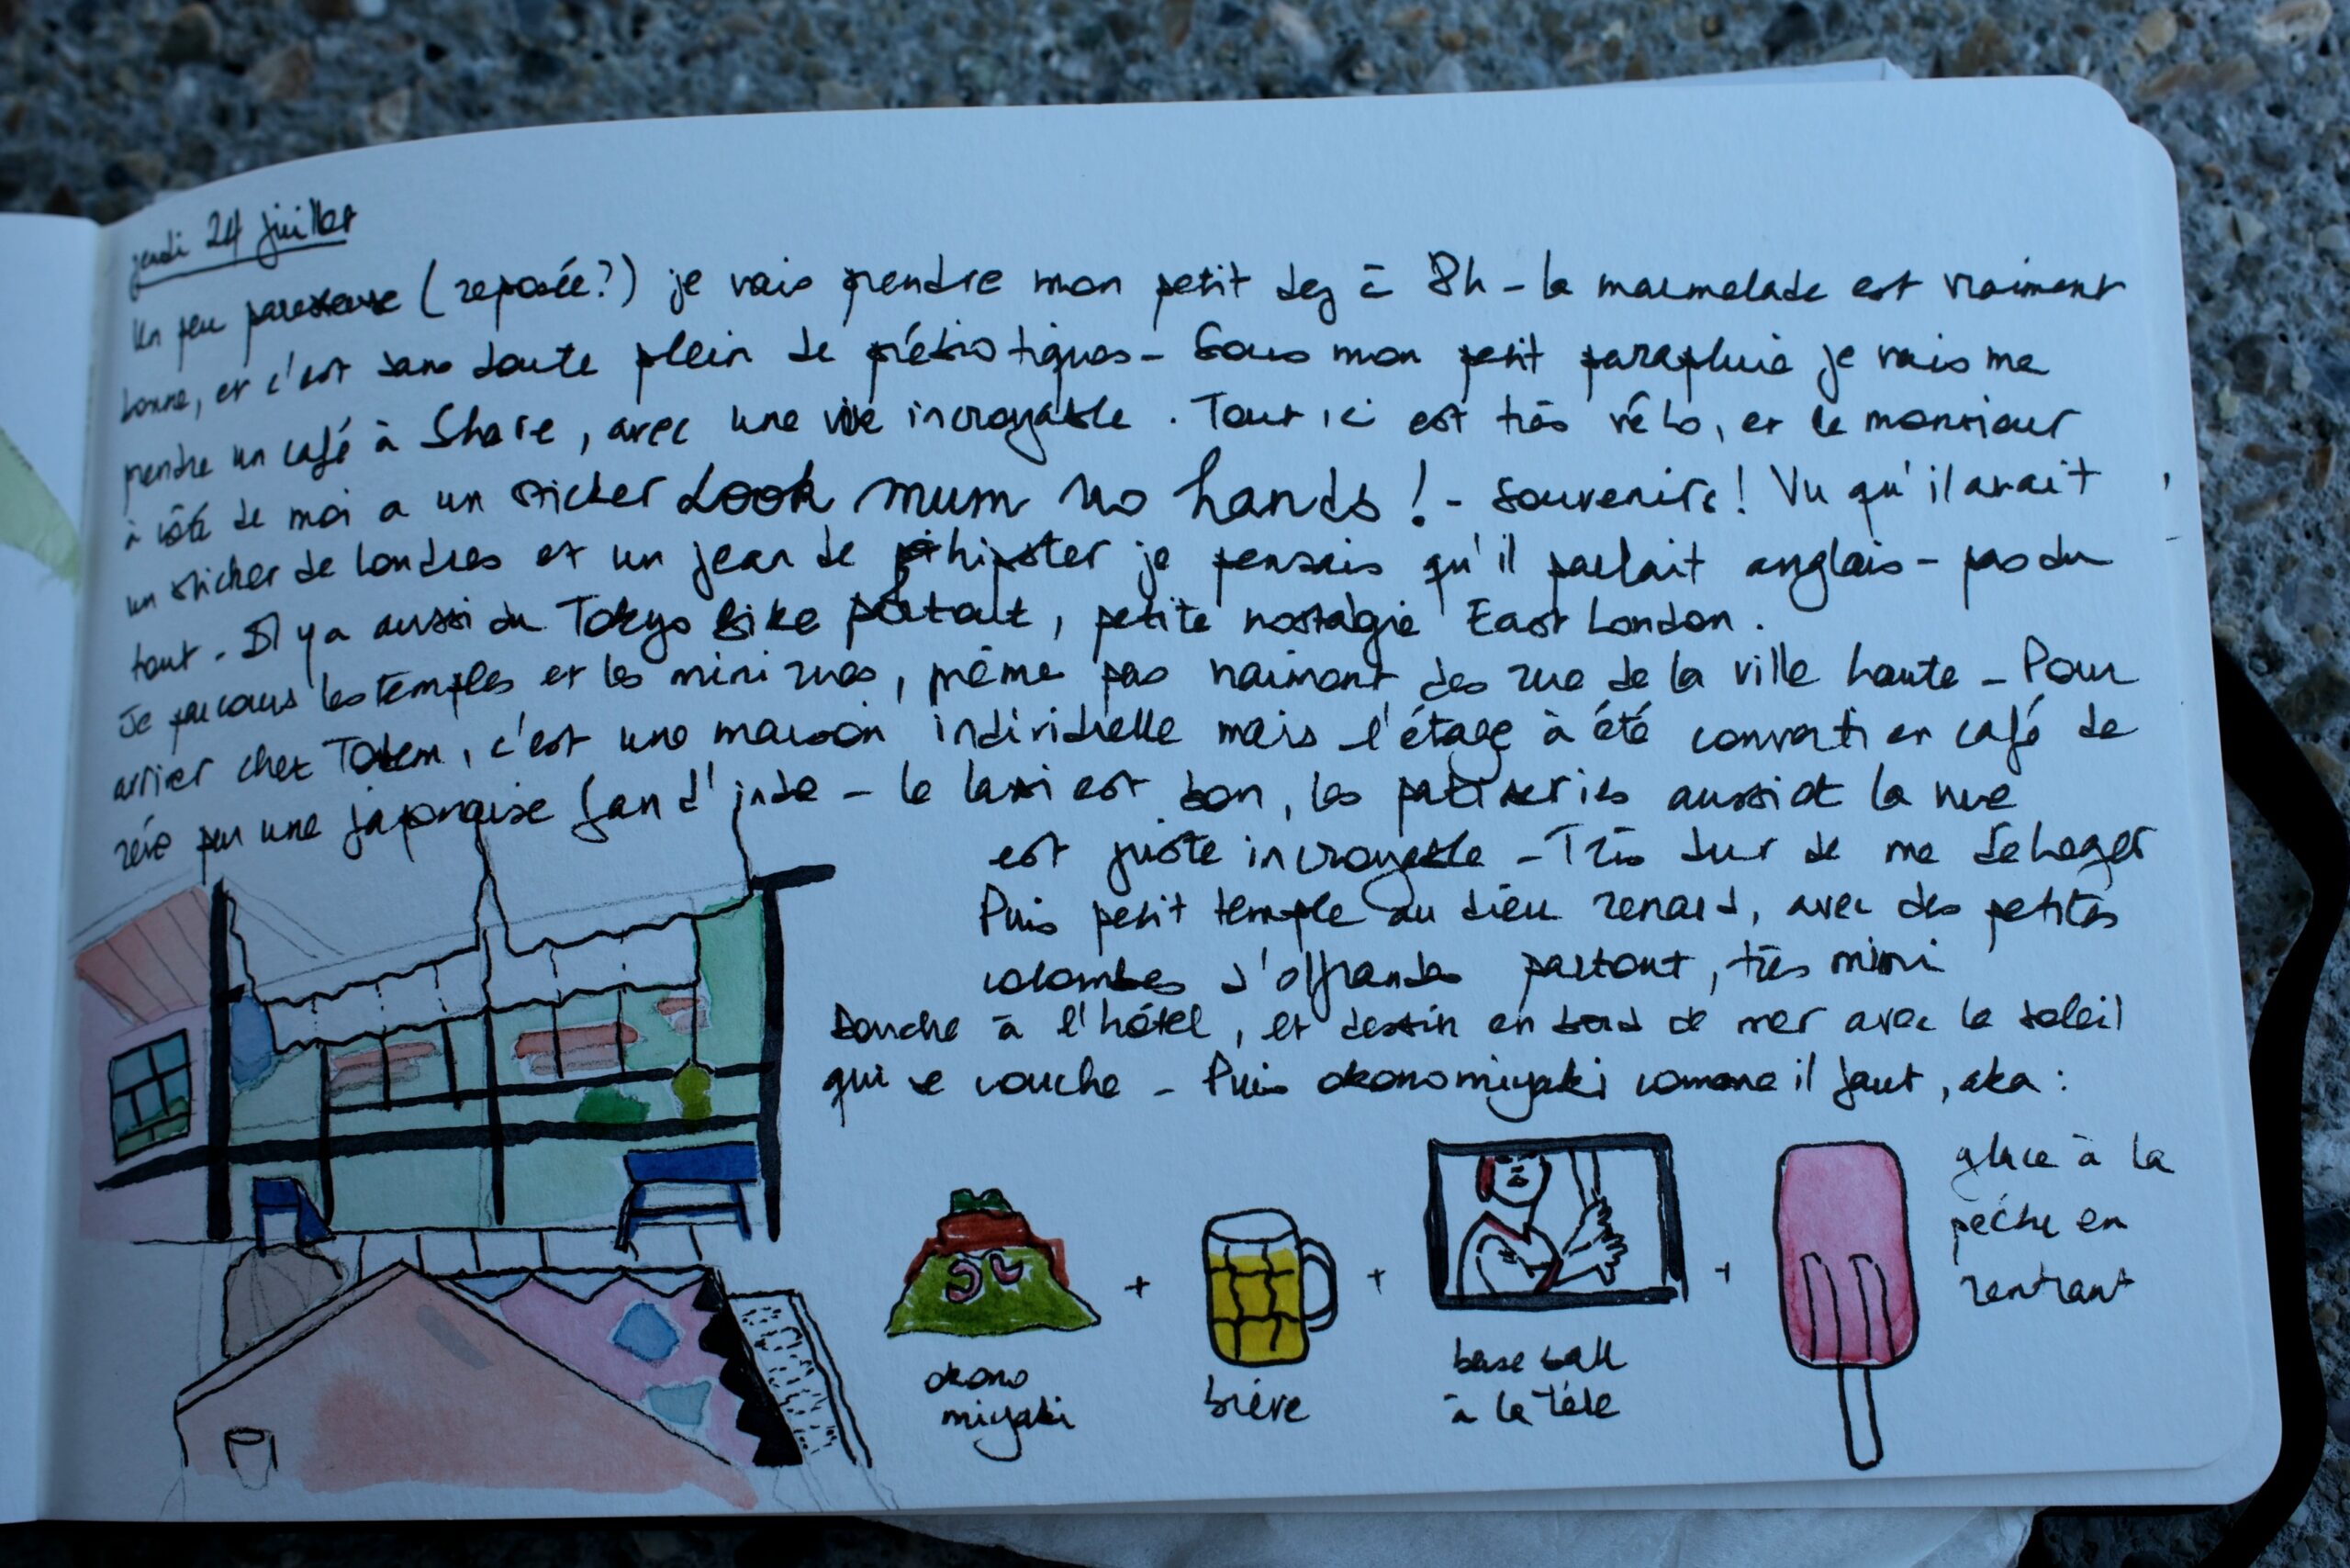 jeudi 24 juillet
Un peu paresseuse (reposée?) je vais prendre mon petit dej à 8h - la marmelade est vraiment
bonne, et c'est sans doute plein de prébiotiques - Sous mon petit parapluie je vais me
prendre un café à Share, avec une vue incroyable. Tout ici est très vélo, et le monsieur
à côté de moi a un sticker Look mum no hands! - souvenirs! Vu qu'il avait
un sticker de Londres et un jean de hipster je pensais qu'il parlait anglais - pas du
tout. Il y a aussi du Tokyo bike partout, petite nostalgie East London.
Je parcours les temples et les mini rues, même pas vraiment des rue de la ville haute - Pour
arriver chez Totem, c'est une maison individuelle mais l'étage à été converti en café de
rêve par une japonaise fan d'inde - le lassi est bon, les patisseries aussi et la vue
est juste incroyable - Très dur de me déloger
Puis petit temple au dieu renard, avec des petites
colombes d'offrandes partout, très mimi
Douche à l'hôtel, et dessin en bord de mer avec le soleil
qui se couche - Puis okonomiyaki comme il faut, aka:
okono
miyaki
+
bière
+
base ball
à la télé
+
glace à la
pêche en
rentrant